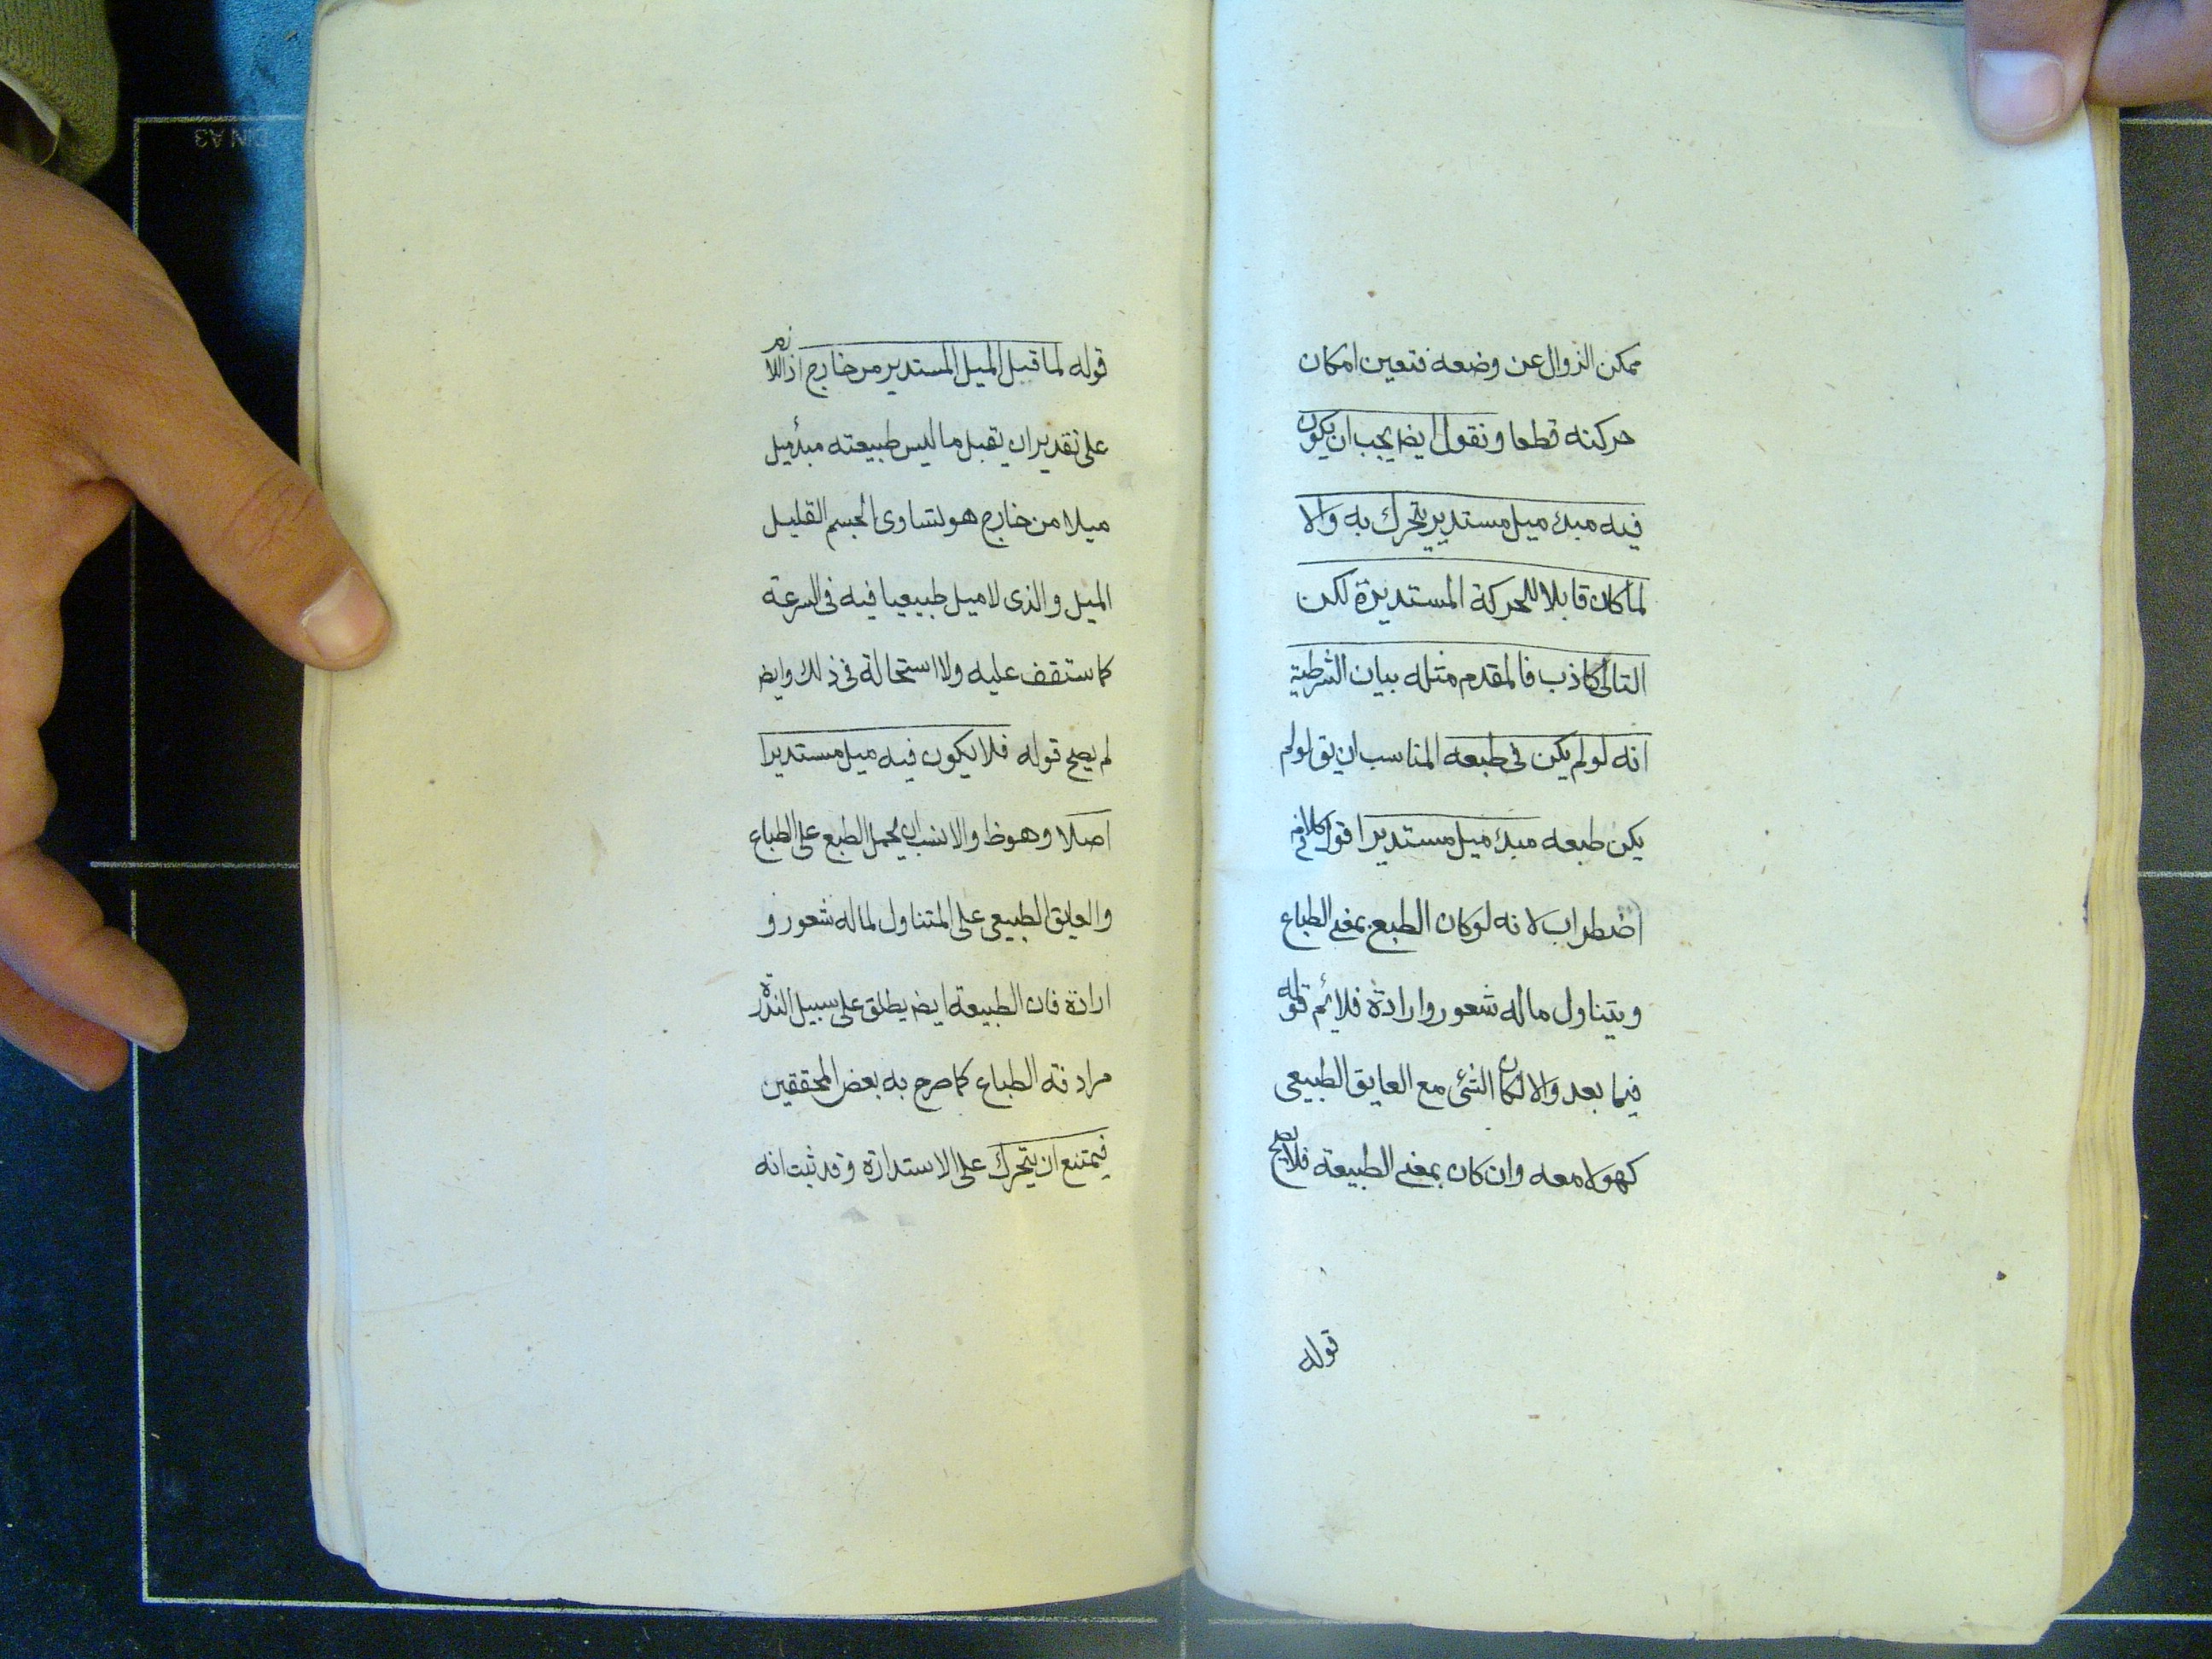 ممكن الزوال عن وضعه فتعين امكان
حركته قطعا ونقول ايضا يجب ان يكون
فيه مبدء ميل مستدير يتحرك به والا
لما كان قابلا للحركة المستديرة لكن
التالى كاذب فالمقدم مثله بيان الشرطية
انه لو لم يكن فى طبعه المناسب ان يق لو لم
يكن طبعه مبدء ميل مستديرا قول كلامه
اضطراب لانه لو كان الطبع بمعنى الطباع
ويتناول ماله شعور وارادة فلا يلائم قوله
فيما بعد والا لكان الشئ مع العايق الطبيعى
كهو لا معه وان كان بمعنى الطبيعة فلا يصح
قوله
قوله لما قبل الميل المستدير من خارج اذ اللازم
على تقدير ان يقبل ما ليس طبيعته مبدء ميل
ميلا من خارج هو لتساوى الجسم القليل
الميل والذى لا ميل طبيعيا فيه فى السرعة
كما ستقف عليه ولا استحالة فى ذلك وايض
لم يصح قوله فلا يكون فيه ميل مستديرا
اصلا وهو ظ والانسب ان يحمل الطبع على الطباع
والعايق الطبيعى على المتناول لماله شعور و
ارادة فان الطبيعة ايض يطلق على سبيل الندرة
مرادفة الطباع كما صرح به بعض المحققين
فيمتنع ان يتحرك على الاستدارة وقد ثبت انه